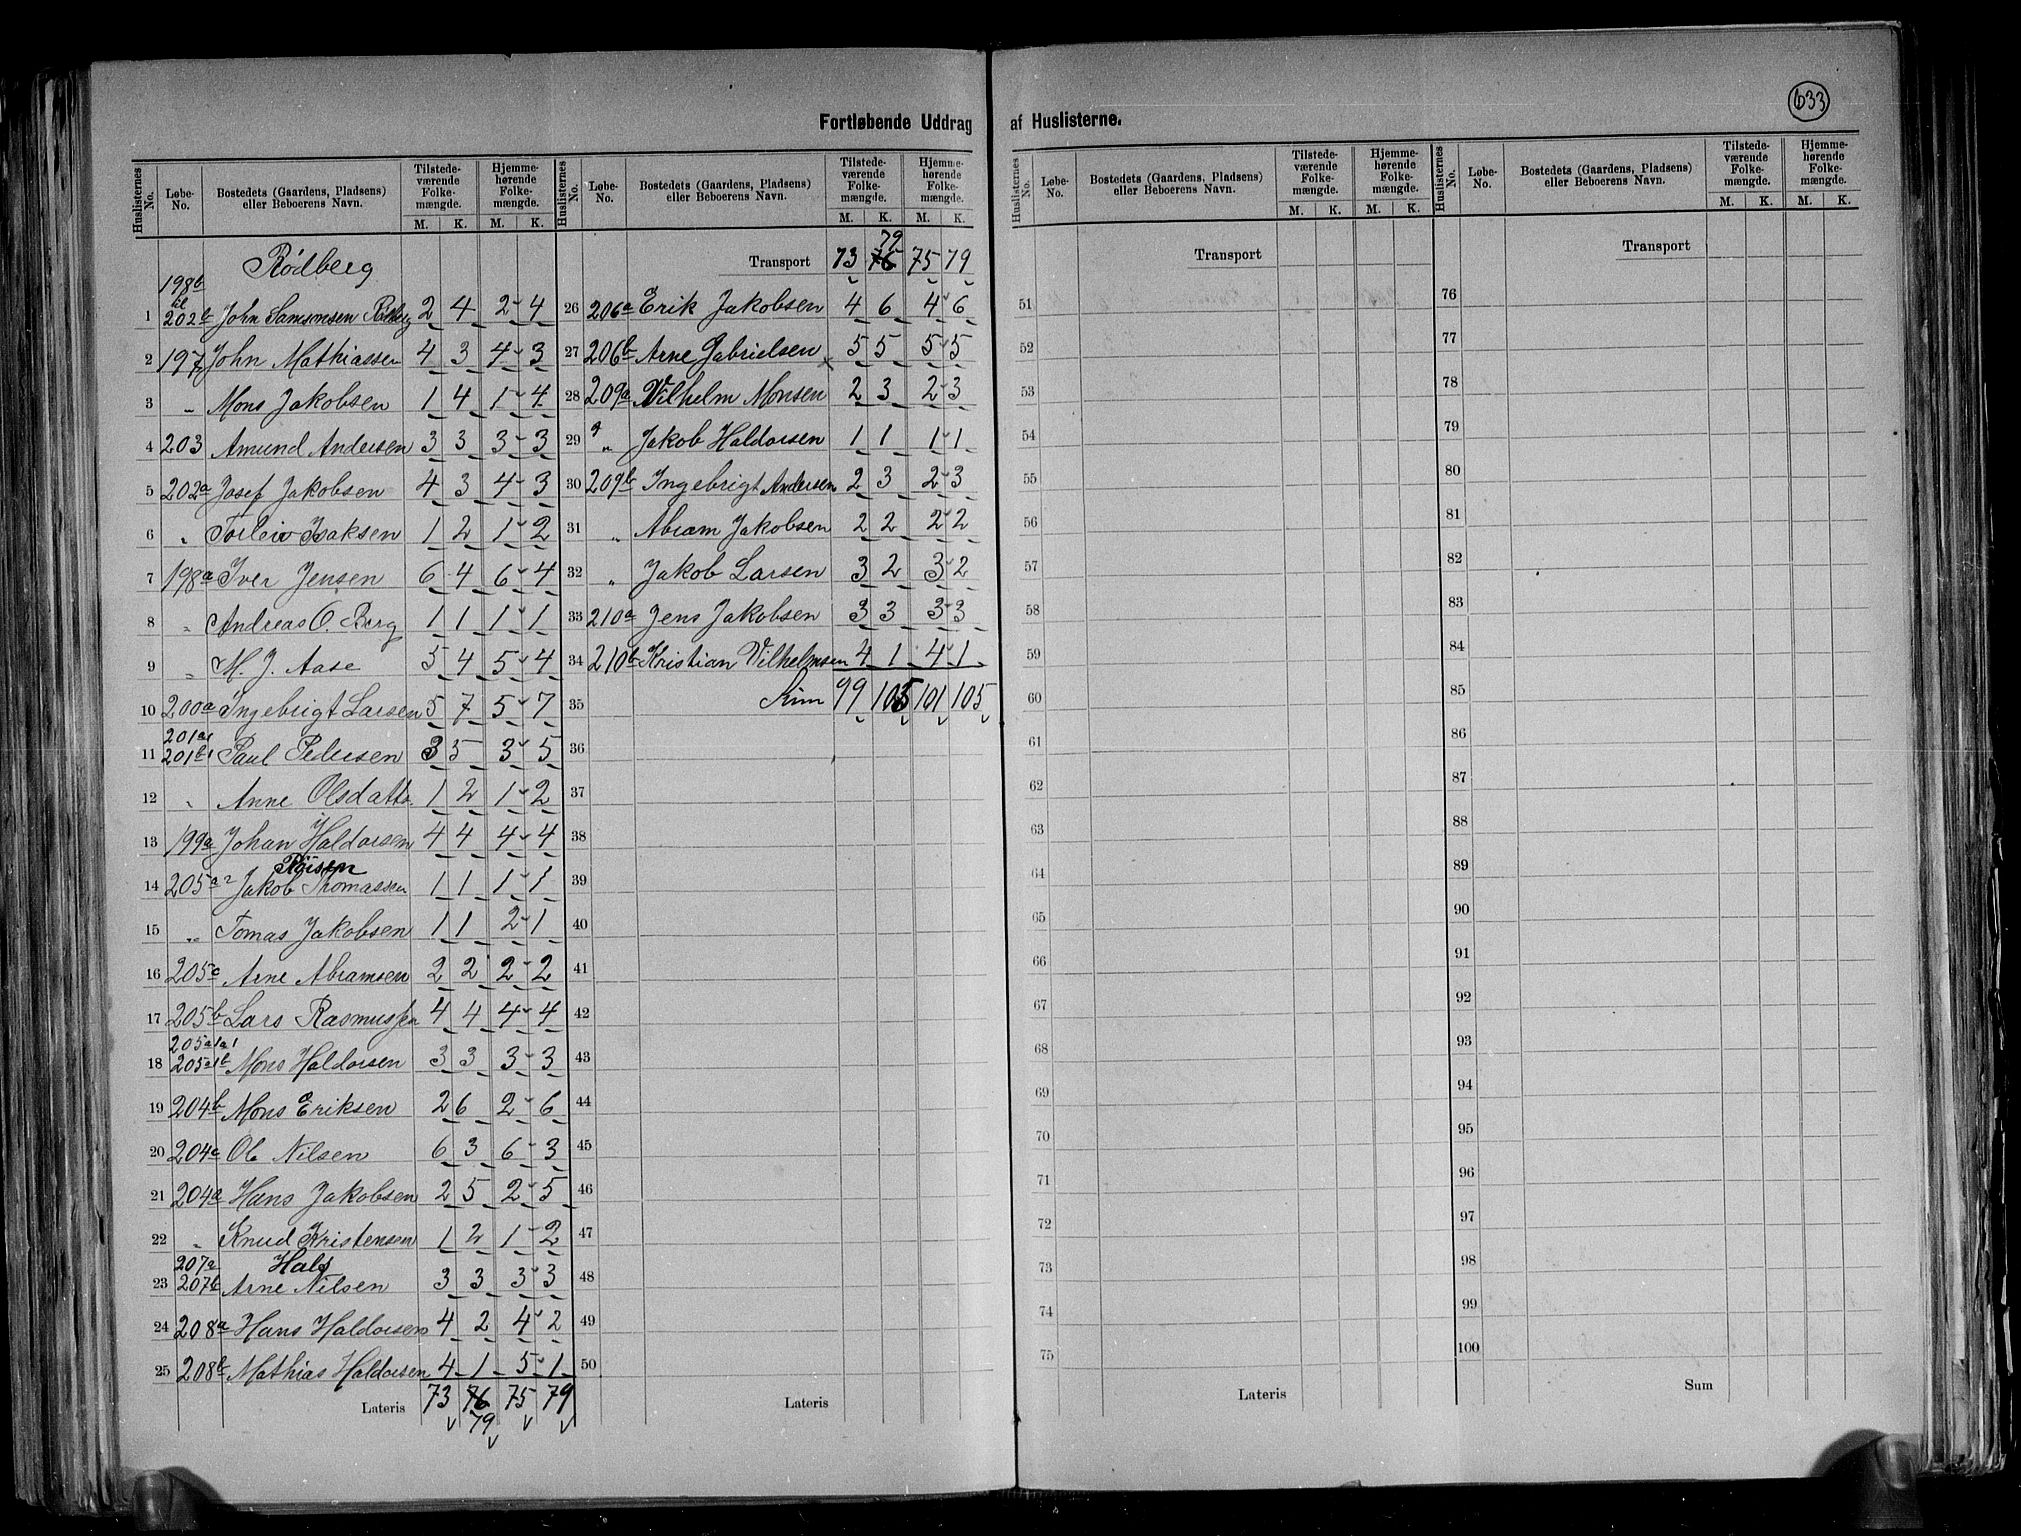 633
Fortløbende Uddrag af Huslisterne.
Huslisternes No. Løbe-No. Bostedets (Gaardens, Pladsens) eller Beboerens Navn. Tilstedeværende Folkemængde. M. K. Hjemmehørende Folkemængde. M. K.
Rödberg
198b
1 202b John Samsonsen Rødberg 2 4 2 4
2 197 John Mathiassen 4 3 4 3
3 „ Mons Jakobsen 1 4 1 4
4 203 Amund Andersen 3 3 3 3
5 202a Josef Jakobsen 4 3 4 3
6 „ Torleiv Isaksen 1 2 1 2
7 198a Iver Jensen 6 4 6 4
8 „ Andreas O. Berg 1 1 1 1
9 „ M. J. Aase 5 4 5 4
10 200a Ingebrigt Larsen 5 7 5 7
201a1
11 201b1 Paul Pedersen 3 5 3 5
12 „ Anne Olsdatter 1 2 1 2
13 199a Johan Haldorsen 4 4 4 4
14 205a2 Jakob Thomassen 1 1 1 1
15 „ Tomas Jakobsen 1 1 2 1
16 205c Arne Abramsen 2 2 2 2
17 205b Lars Rasmussen 4 4 4 4
205a1a1
18 205a1b Mons Haldorsen 3 3 3 3
19 204b Mons Eriksen 2 6 2 6
20 204c Ole Nilsen 6 3 6 3
21 204a Hans Jakobsen 2 5 2 5
22 „ Knud Kristensen 1 2 1 2
207a Hals
23 207b Arne Nilsen 3 3 3 3
24 208a Hans Haldorsen 4 2 4 2
25 208b Mathias Haldorsen 4 1 5 1
Lateris 73 76 75 79
79
Huslisternes No. Løbe-No. Bostedets (Gaardens, Pladsens) eller Beboerens Navn. Tilstedeværende Folkemængde. M. K. Hjemmehørende Folkemængde. M. K.
79
Transport 73 76 75 79
26 206a Erik Jakobsen 4 6 4 6
27 206b Arne Gabrielsen 5 5 5 5
28 209a Vilhelm Monsen 2 3 2 3
29 „ Jakob Haldorsen 1 1 1 1
30 209b Ingebrigt Andersen 2 3 2 3
31 „ Abram Jakobsen 2 2 2 2
32 „ Jakob Larsen 3 2 3 2
33 210a Jens Jakobsen 3 3 3 3
34 210b Kristian Vilhelmsen 4 1 4 1
35 Sum 99 105 101 105
36
37
38
39
40
41
42
43
44
45
46
47
48
49
50
Lateris
Huslisternes No. Løbe-No. Bostedets (Gaardens, Pladsens) eller Beboerens Navn. Tilstedeværende Folkemængde. M. K. Hjemmehørende Folkemængde. M. K.
Transport
51
52
53
54
55
56
57
58
59
60
61
62
63
64
65
66
67
68
69
70
71
72
73
74
75
Lateris
Huslisternes No. Løbe-No. Bostedets (Gaardens, Pladsens) eller Beboerens Navn. Tilstedeværende Folkemængde. M. K. Hjemmehørende Folkemængde. M. K.
Transport
76
77
78
79
80
81
82
83
84
85
86
87
88
89
90
91
92
93
94
95
96
97
98
99
100
Sum